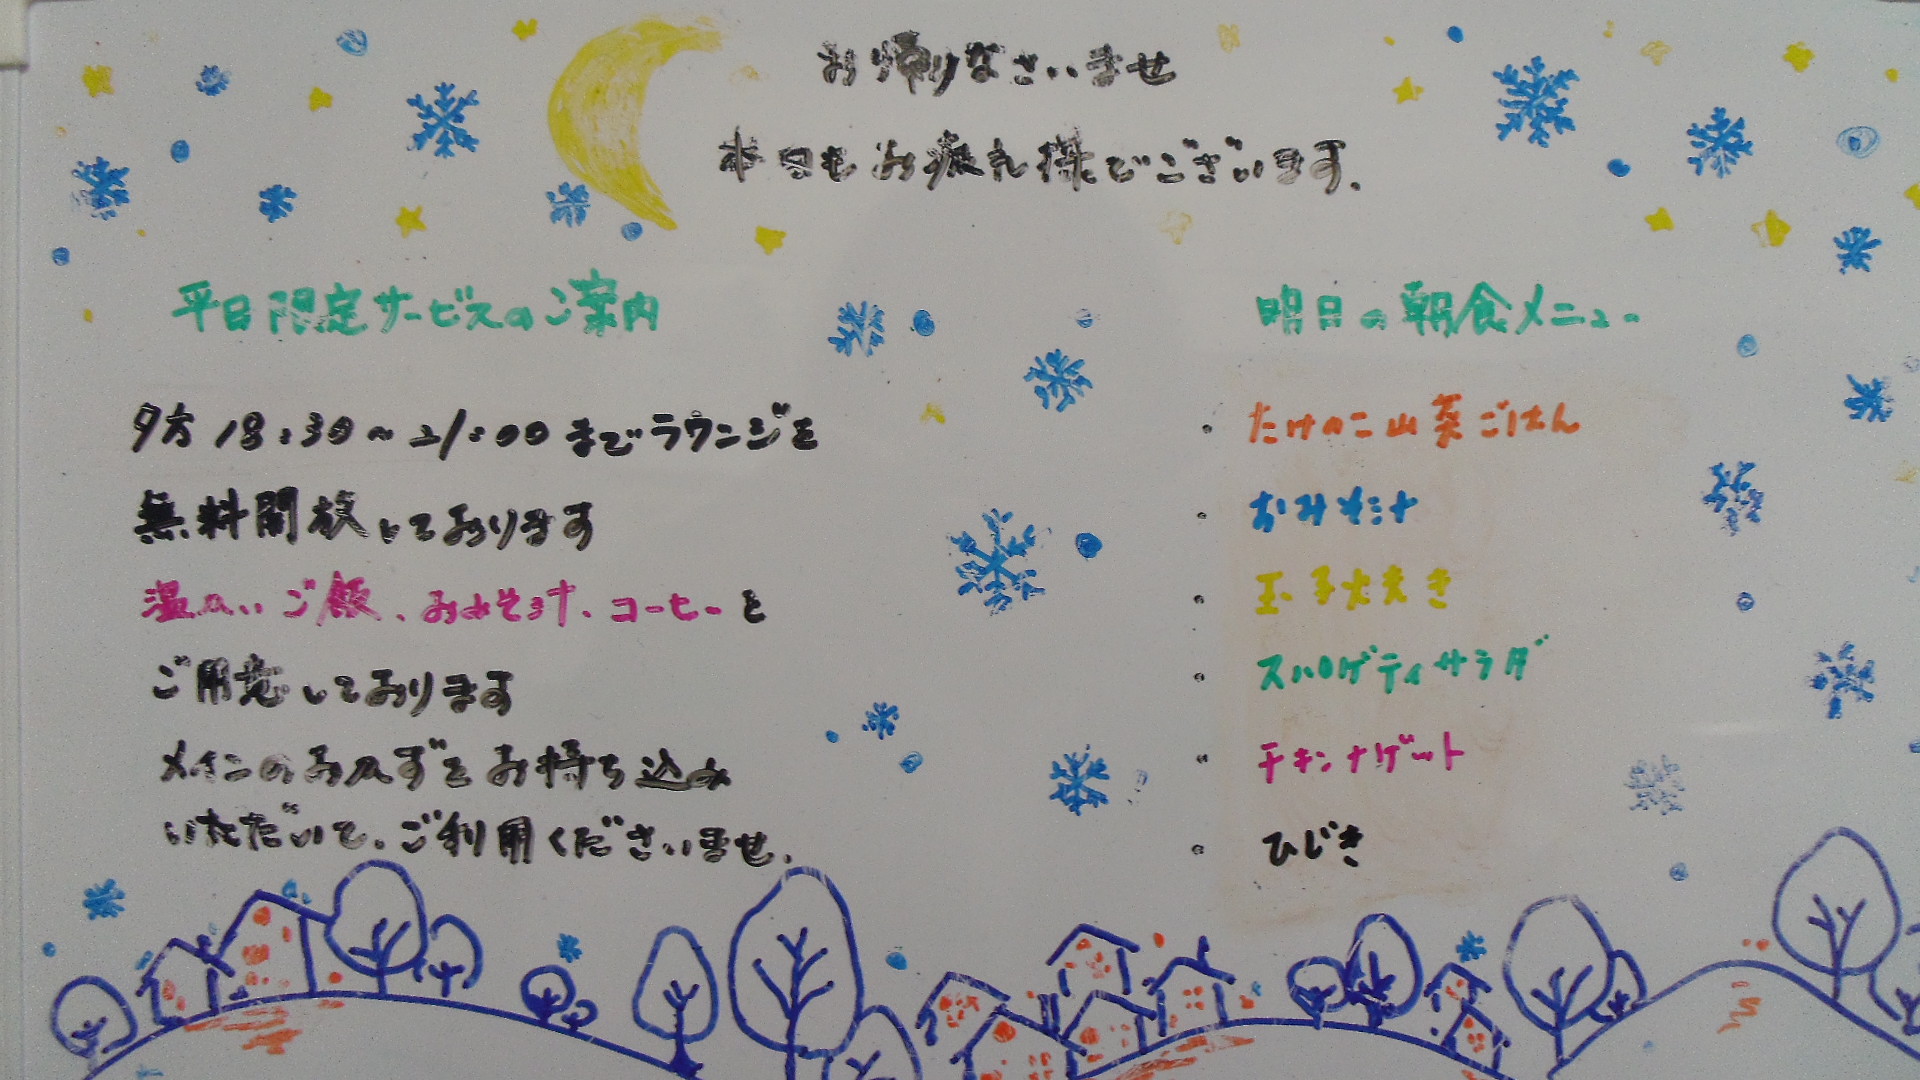 お帰りなさいませ
本日もお疲れ様でございます.
平日限定サービスのご案内
夕方 18:30～21:00 までラウンジを
無料開放しております
温かいご飯、おみそ汁、コーヒーを
ご用意しております
メインのおかずをお持ち込み
いただいて、ご利用くださいませ.
明日の朝食メニュー
・たけのこ山菜ごはん
・おみそ汁
・玉子焼き
・スパゲティサラダ
・チキンナゲット
・ひじき